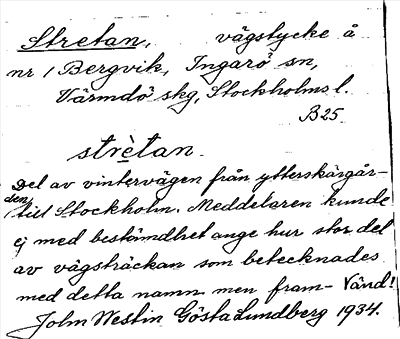 Stretan, vägstycke å
nr 1 Bergvik, Ingarö sn,
Värmdö skg, Stockholms l.
B25
strètan.
Del av vintervägen från ytterskärgår-
den till Stockholm. Meddelaren kunde
ej med bestämdhet ange hur stor del
av vägsträckan som betecknades
med detta namn men fram- Vänd!
John Westin Gösta Lundberg 1934.